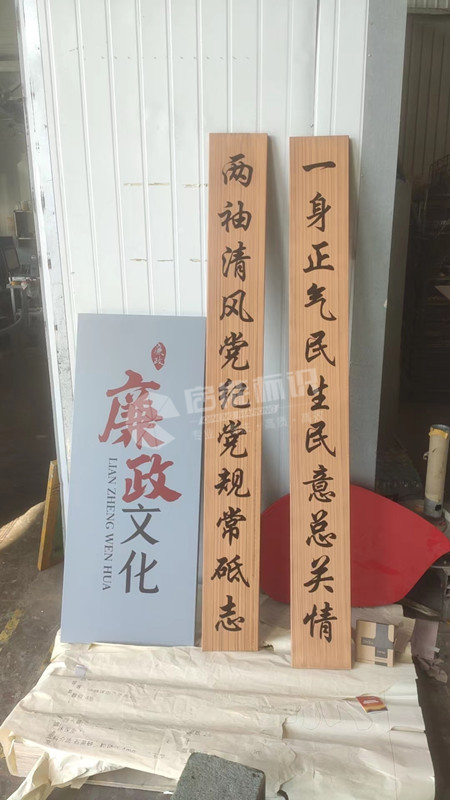 一身正气民生民意总关情
两袖清风党纪党规常砥志
廉政
廉政
文化
LIAN ZHENG WEN HUA
标识